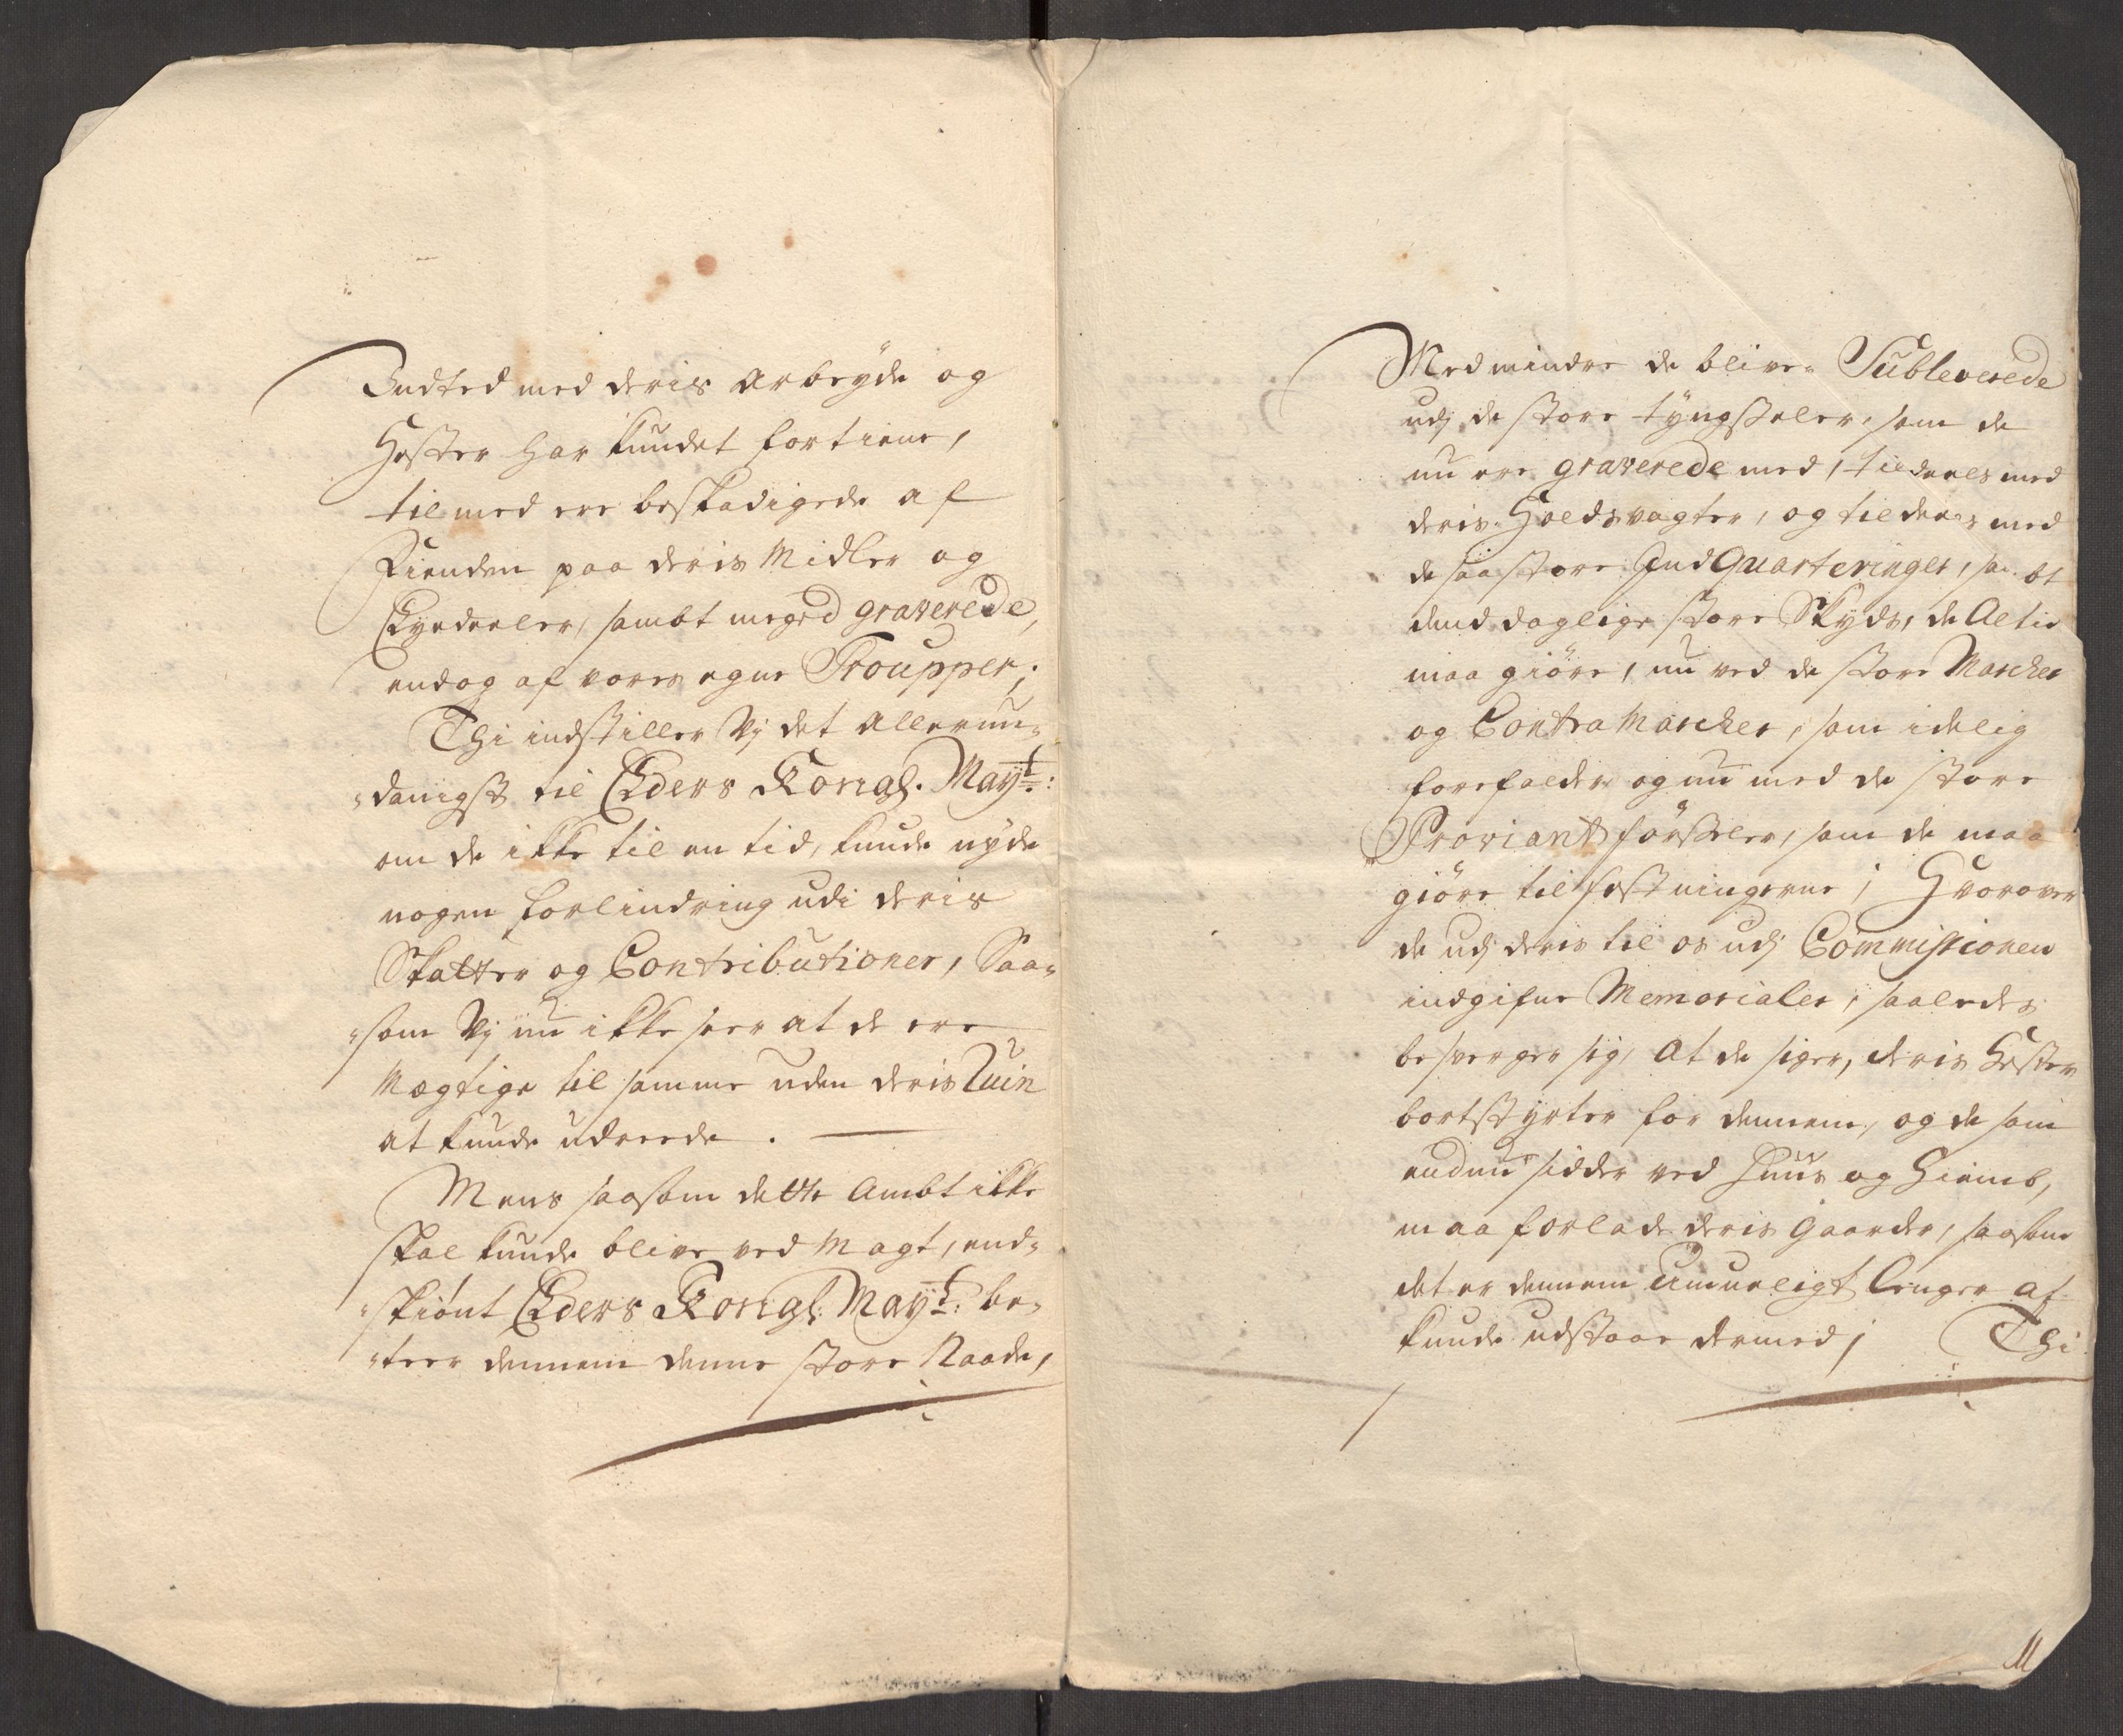 Indted med deris arbeyde og
Hester har kundet fortiene,
tilmed ere beskadigede af
Fienden paa deris Midler og
Eyedeeler, sambt meged graverede,
endog af vores egne Troupper;
Thi indstiller Vj det allerun-
-danigst til Eders Kongl. Mayt:
om de ikke til en tid, kunde nyde
nogen forlindring udi deris
Skatter og Contributioner, Saa-
-som Vj nu ikke seer at de ere
Mægtige til samme uden deris Ruin
at kunde udreede.
Mens saasom dette Ambt ikke
skal kunde blive ved Magt, end-
-skiönt Eders Kongl: Mayt: be-
-teer dennem denne store Naade,
Med mindre de bliver Subleverede
udj de store tyngsteler, som de
nu ere graverede med, tildeels med
deris Holdsvagter, og tildeels med
de saa store IndQuarteringer, sa bt
dend daglige store Skyds, de Altid
maa giöre, nu ved de store Marcher
og Contra Marcher, som idelig
forefalder og nu med de store
Proviant förseler, som de maa
giöre til festningerne; Hvorover
de udj deris til os udj Commissionen
indgifne Memorialer, saaledes
besverger sig, At de siger, deris Hester
bortstyrter for dennem, og de som
endnu sidder ved Huus og Hiemb,
maa forlade deris gaarder, saasom
det er dennem Umueligt lenger at
kunde udstaae dermed; Thi